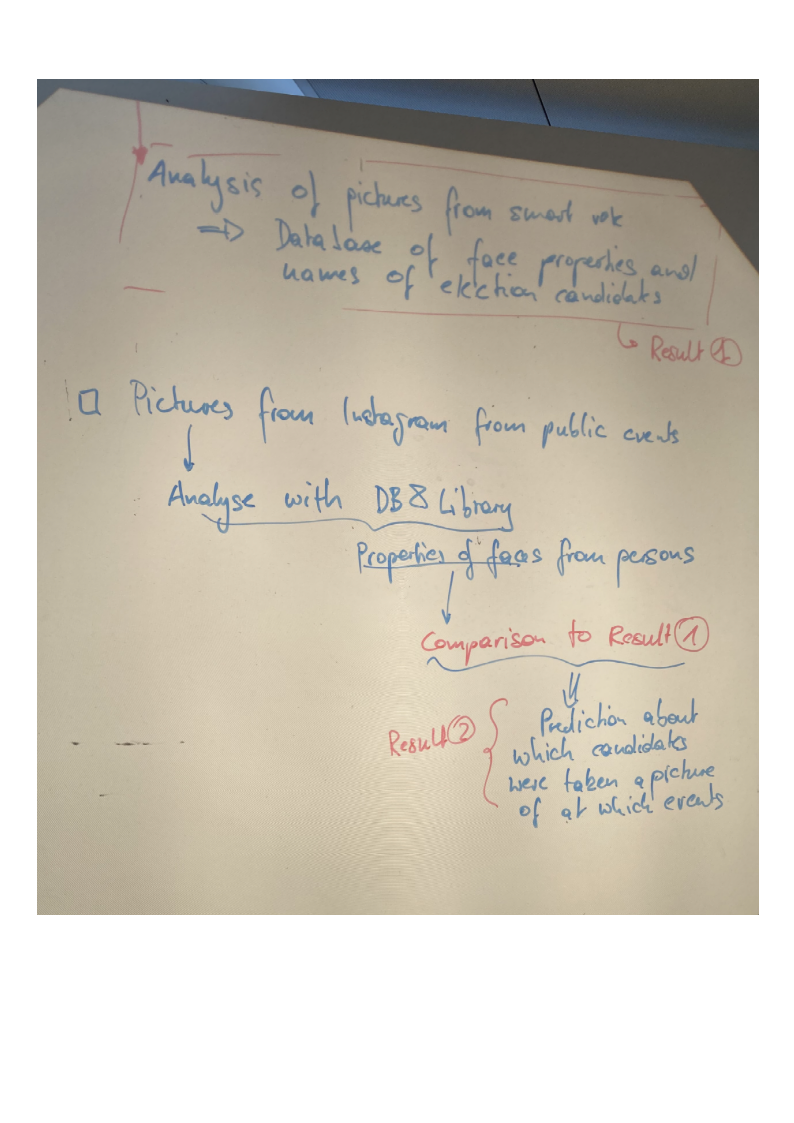 Analysis of pictures from smart vote
⇒ Database of face properties and
names of election candidats
↳ Result ①
□ Pictures from Instagram from public events
↓
Analyse with DB & Library
Properties of faces from persons
↓
Comparison to Result ①
⇓
Result ② { Prediction about
which candidats
were taken a picture
of at which events